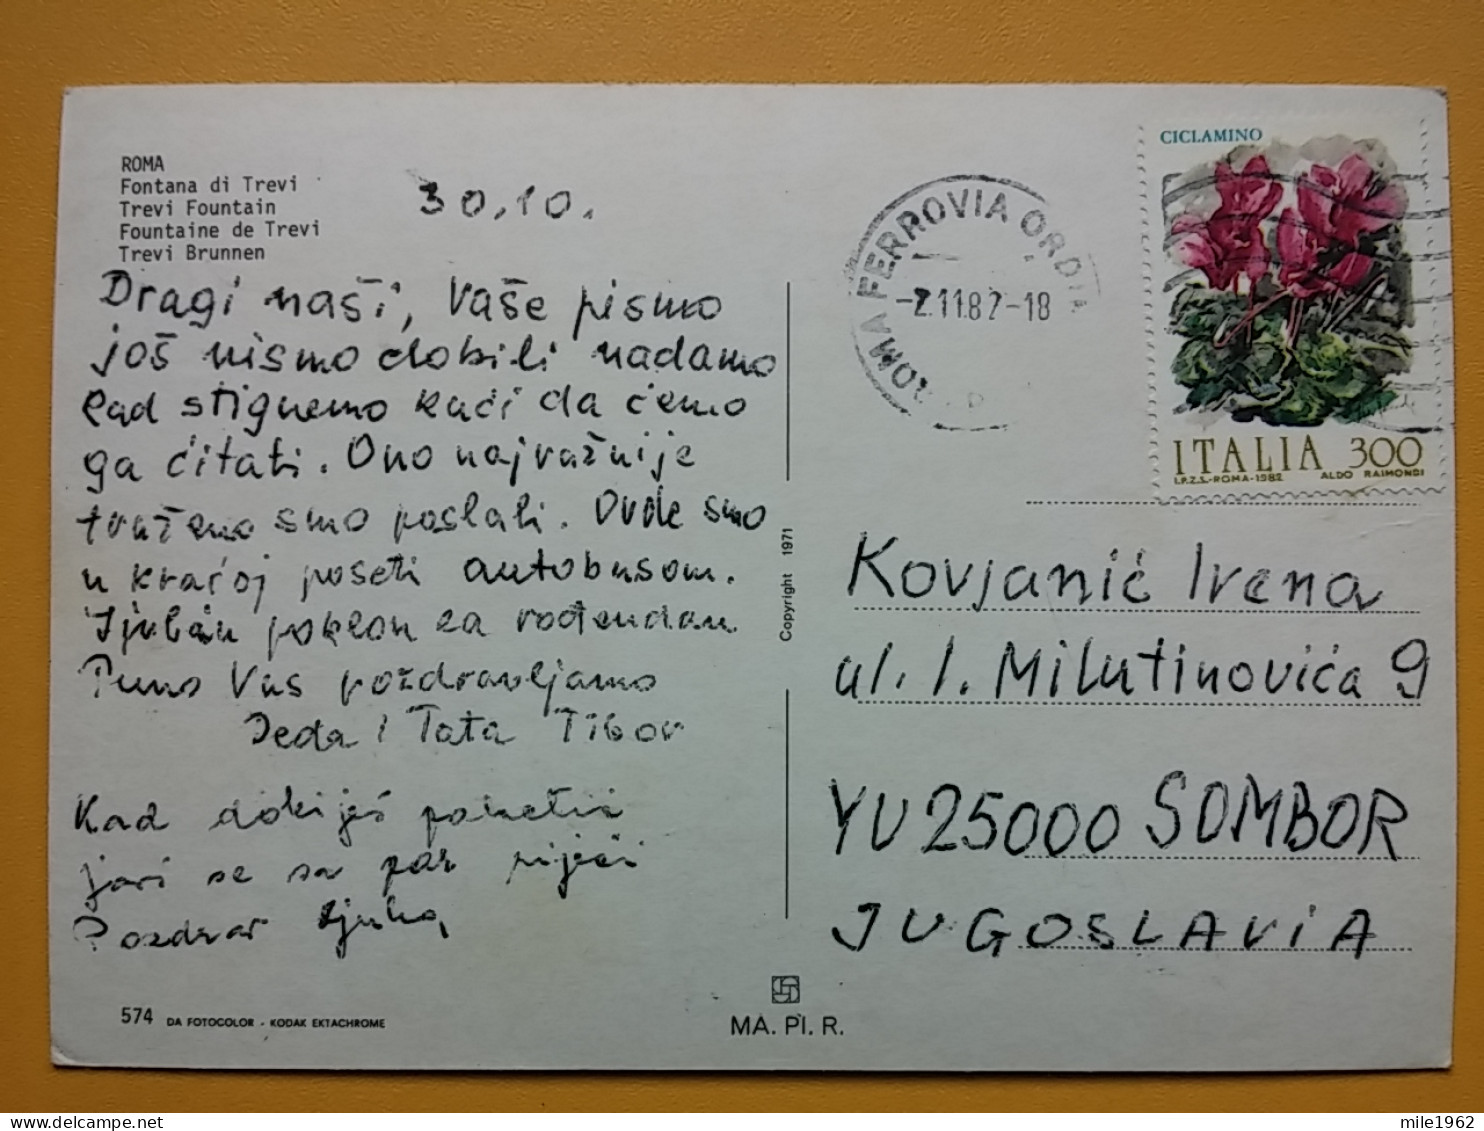 ROMA
Fontana di Trevi
Trevi Fountain
Fountaine de Trevi
Trevi Brunnen
30.10.
Dragi naši, Vaše pismo
još nismo dobili nadamo
kad stignemo kući da ćemo
ga čitati. Ono najvažnije
traženo smo poslali. Ovde smo
u kraćoj poseti autobusom.
Ljuban poklon za rođendan
Puno Vas pozdravljamo
Deda i Tata Tibor
Kad dobiješ paketić
javi se sa par riječi
Pozdrav
574 DA FOTOCOLOR - KODAK EKTACHROME
Copyright 1971
MA. PI. R.
ROMA FERROVIA ORDIA
-2.11.82-18
CICLAMINO
ITALIA 300
I.P.Z.S.-ROMA-1982 ALDO RAIMONDI
Kovjanić Irena
ul. I. Milutinovića 9
YU 25000 SOMBOR
JUGOSLAViA
mile1962